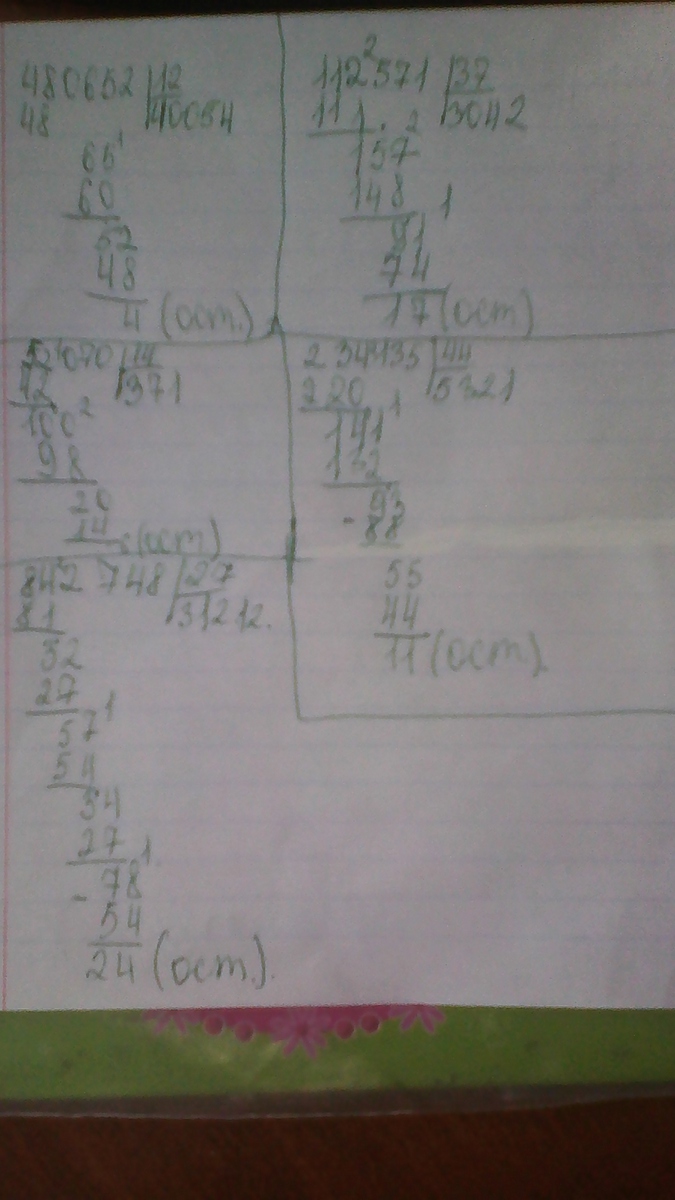 480652 12
48 40054
65 1
60
52
48
4 (ост.)
112 2 571 37
111 3042
157 2
148
91 1
74
17 (ост)
070 14
42 371
100 2
98
20
14
(ост)
234135 44
220 5321
141 1
132
93
- 88
55
44
11 (ост).
842 748 27
81 31212.
32
27
57 1
54
34
27
- 78 1
54
24 (ост.).